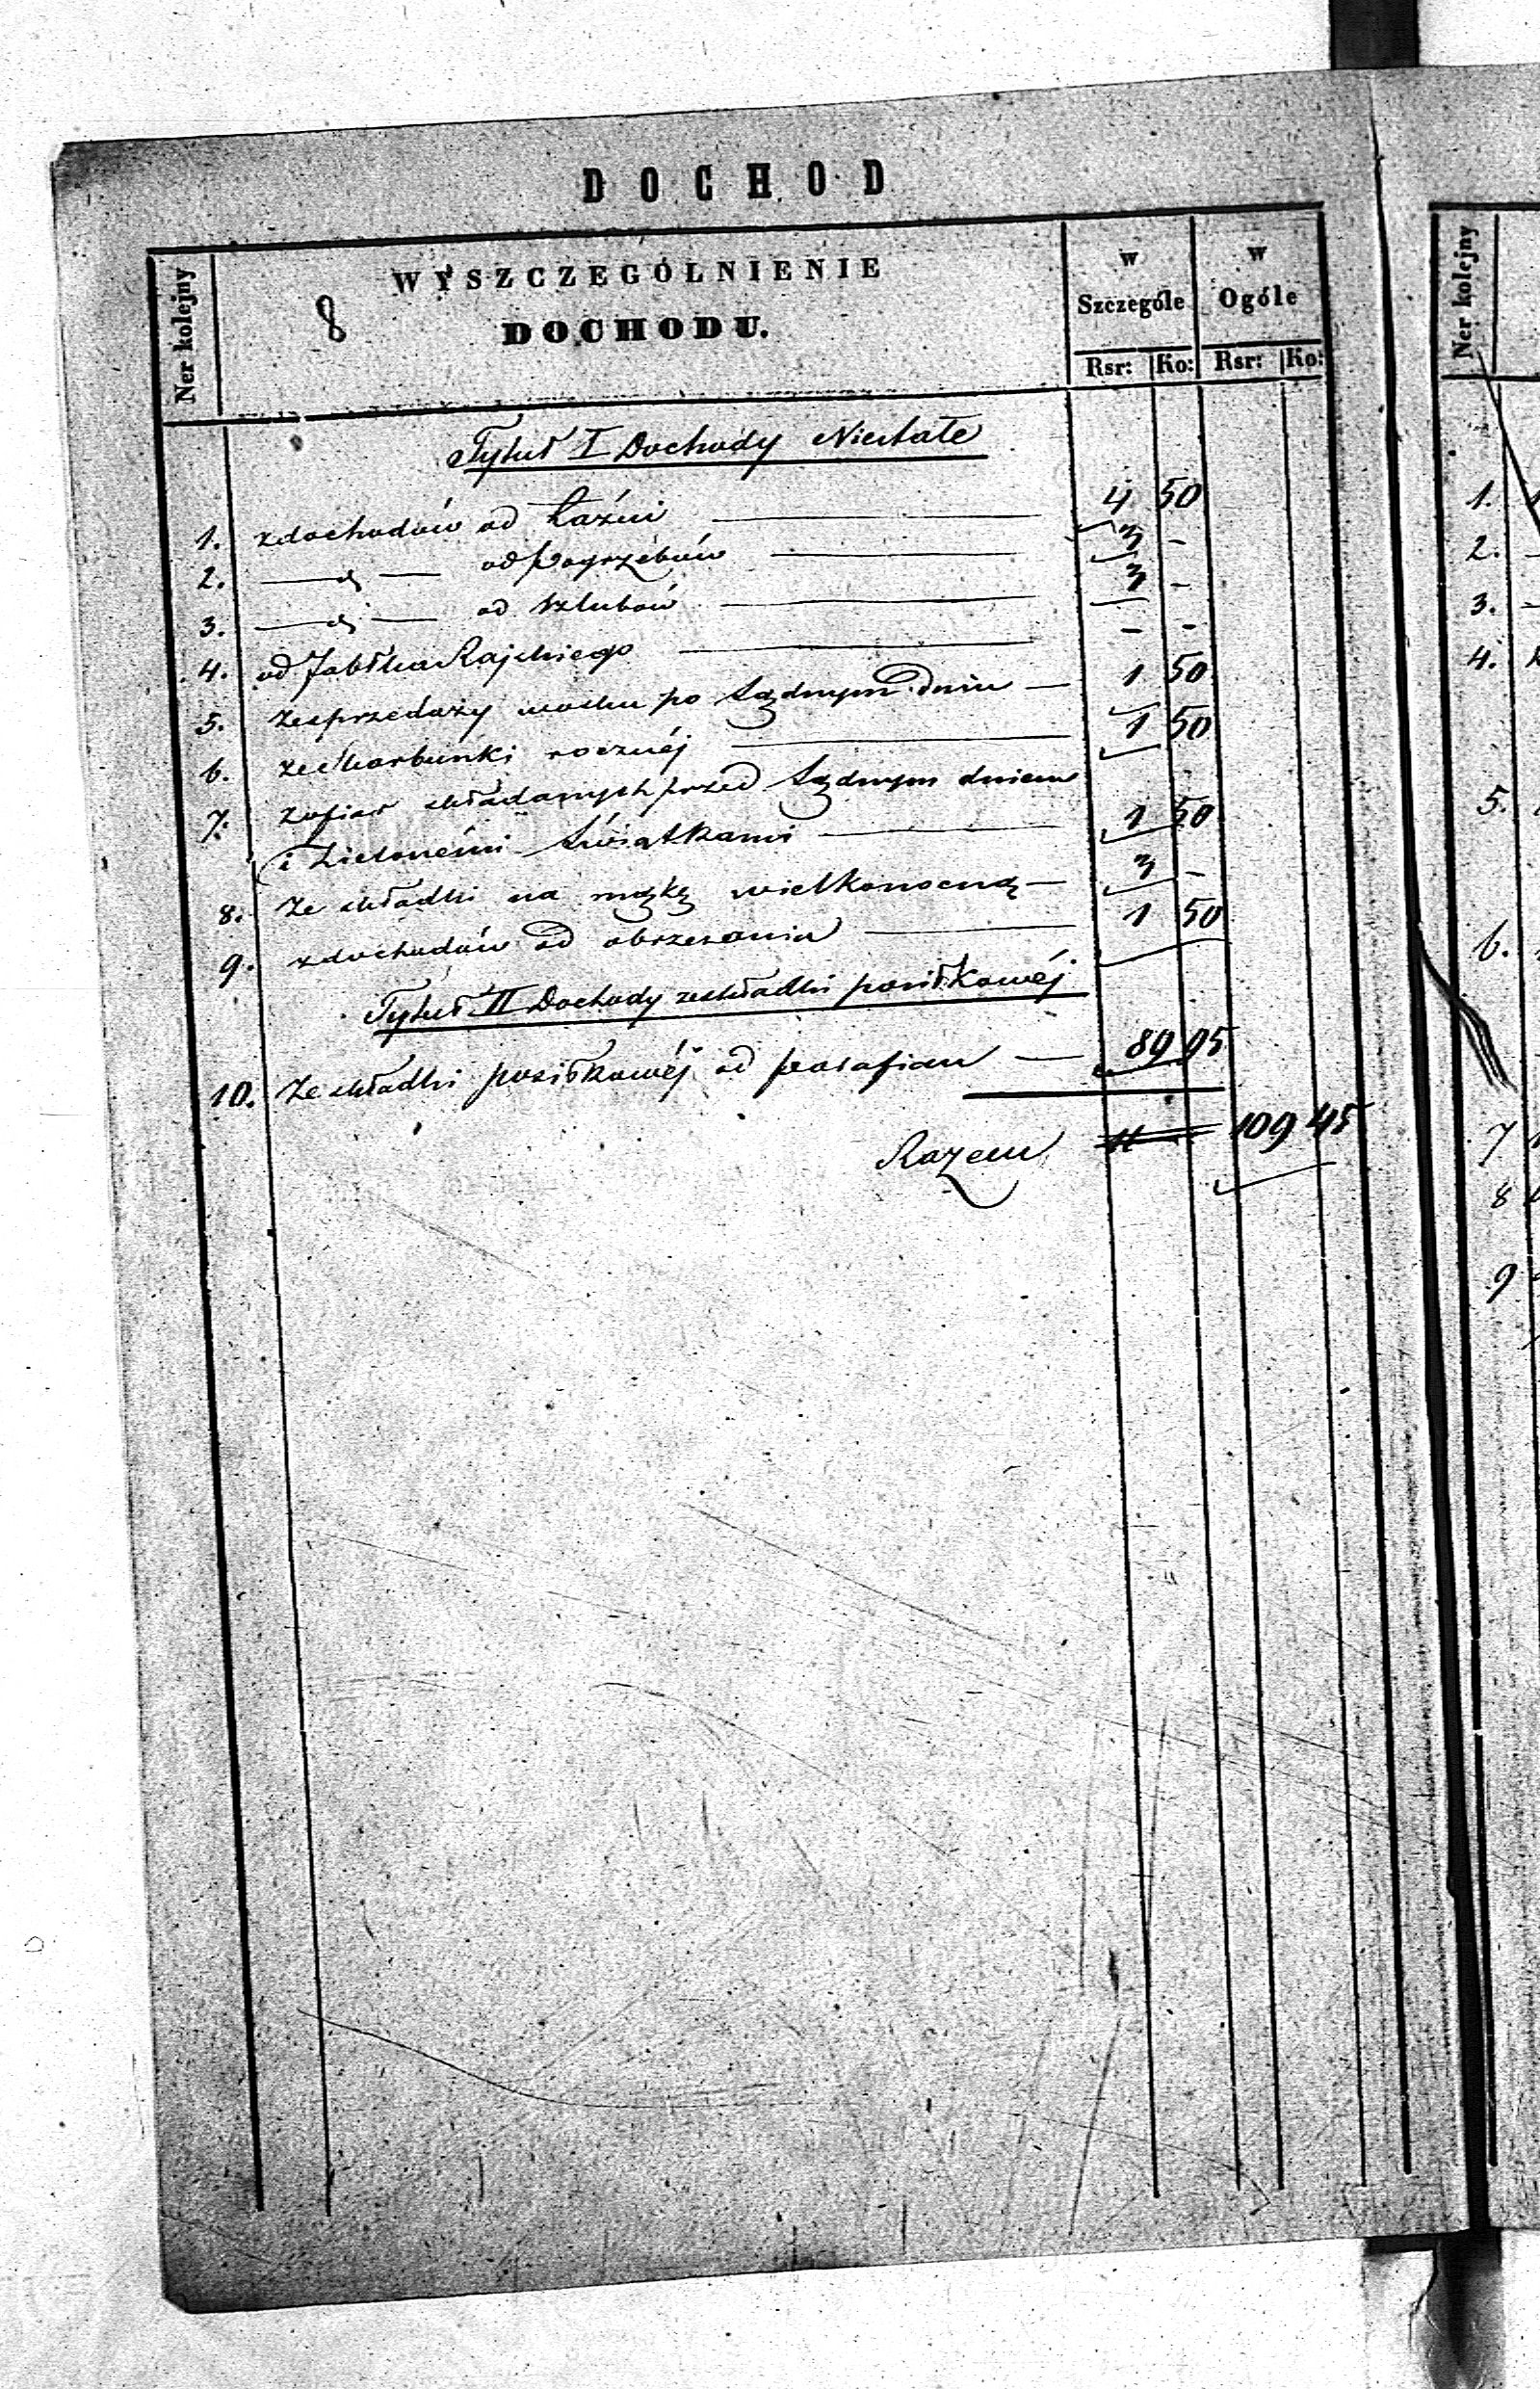 DOCHOD
Ner kolejny
WYSZCZEGÓLNIENIE
8
DOCHODU.
w Szczególe
w Ogóle
Rsr: Ko: Rsr: Ko:
Tytuł I Dochody Niestałe
1. z dochodów od Łaźni 4 50
2. — d — od Pogrzebów 3 -
3. — d — od szlubów 3 -
4. od Jabłka Rajskiego - -
5. ze sprzedaży wosku po Sądnym dniu 1 50
6. ze skarbunki rocznéj 1 50
7. z ofiar składanych przed Sądnym dniem
i Zielonémi Świątkami 1 50
8. Ze składki na mąkę wielkanocną 3 -
9. z dochodów od obrzezania 1 50
Tytuł II Dochody ze składki posiłkowéj
10. Ze składki posiłkowéj od parafian 89 95
Razem 109 45
Ner kolejny
1.
2.
3.
4.
5.
6.
7
8
9